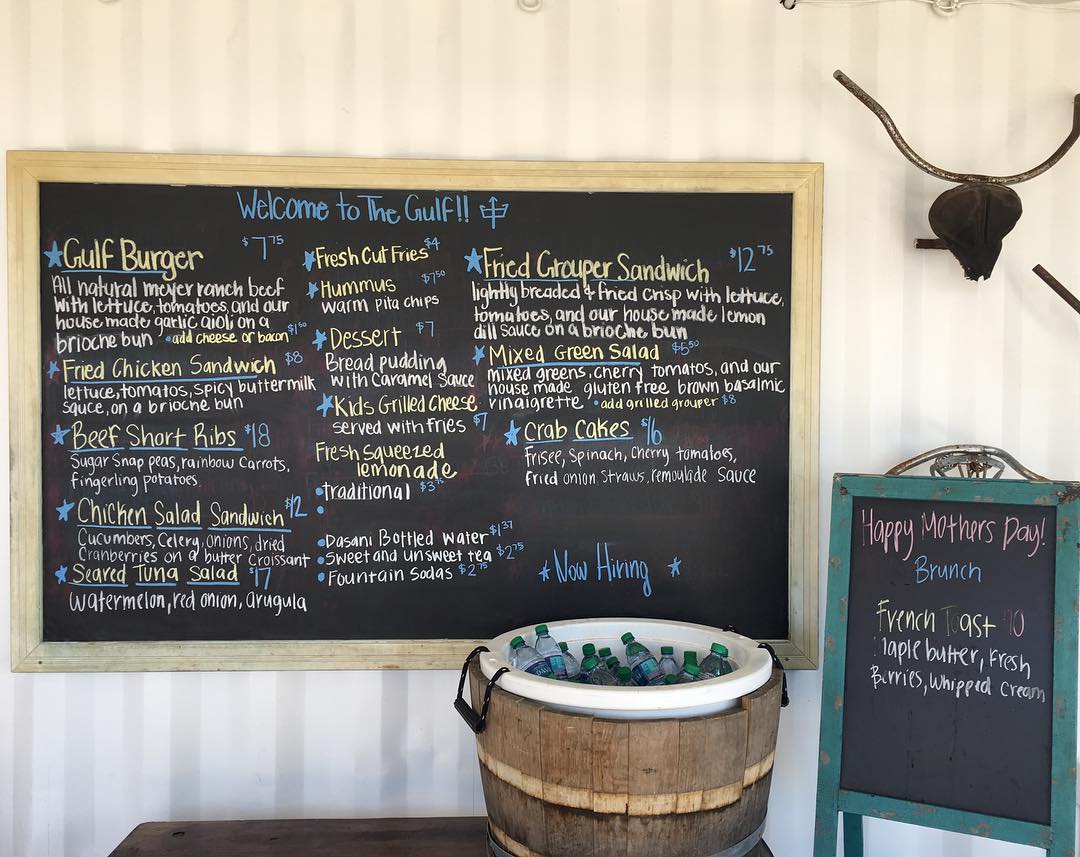 Welcome to The Gulf!!
Gulf Burger $7.75
All natural meyer ranch beef
with lettuce, tomatoes, and our
house made garlic aioli on a
brioche bun • add cheese or bacon $1.50
Fried Chicken Sandwich $8
lettuce, tomatos, spicy buttermilk
sauce, on a brioche bun
Beef Short Ribs $18
Sugar Snap peas, rainbow Carrots,
fingerling potatoes
Chicken Salad Sandwich $12
Cucumbers, Celery, onions, dried
Cranberries on a butter Croissant
Seared Tuna Salad $17
Watermelon, red onion, arugula
Fresh Cut Fries $4
Hummus $7.50
warm pita chips
Dessert $7
Bread pudding
with Caramel Sauce
Kids Grilled Cheese
served with fries $7
Fresh Squeezed
lemonade
• traditional
•
• Dasani Bottled Water $1.37
• Sweet and unsweet tea $2.75
• Fountain Sodas $2.75
Fried Grouper Sandwich $12.75
lightly breaded & fried crisp with lettuce,
tomatoes, and our house made lemon
dill sauce on a brioche bun
Mixed Green Salad $5.50
mixed greens, cherry tomatos, and our
house made gluten free brown basalmic
vinaigrette • add grilled grouper $8
Crab Cakes $16
frisee, Spinach, Cherry tomatoes,
fried onion straws, remoulade sauce
Now Hiring
Happy Mothers Day!
Brunch
French Toast
Maple butter, Fresh
Berries, Whipped Cream